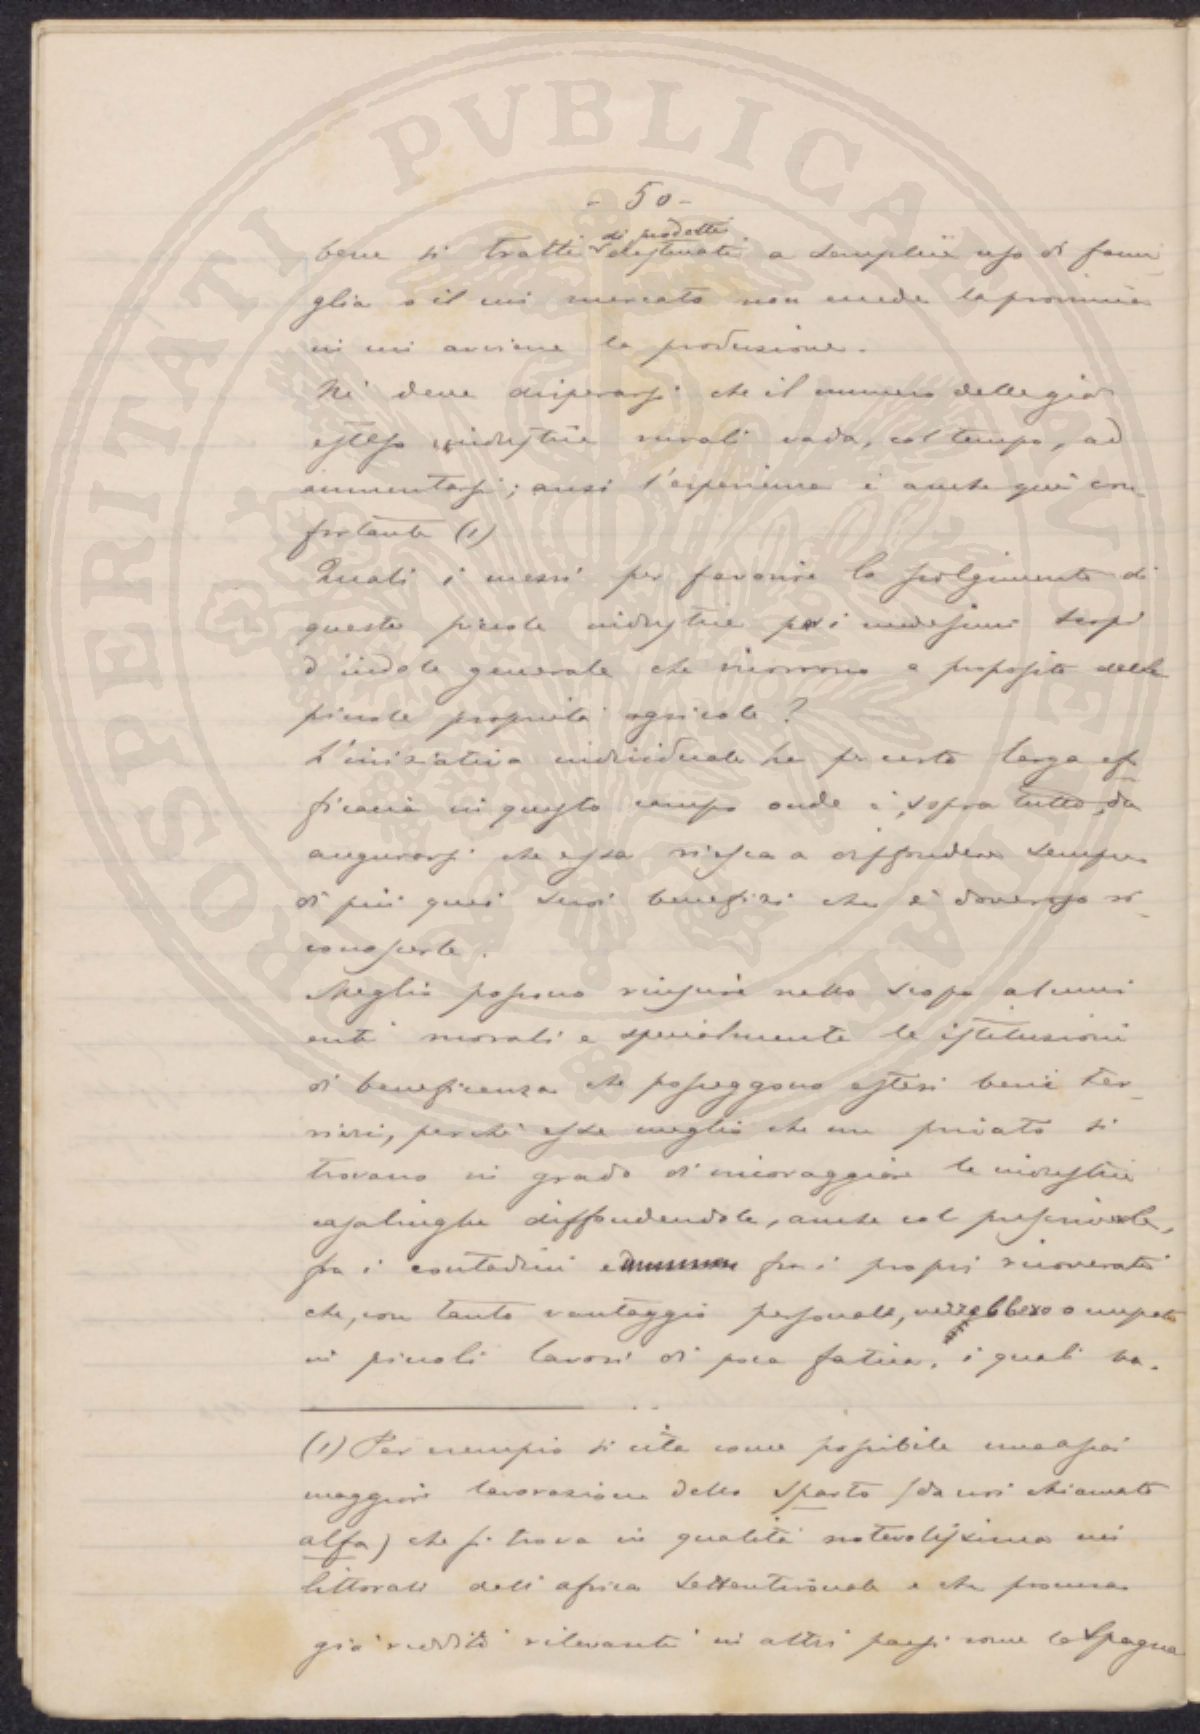 - 50 -
di prodotti
bene si tratti destinati a semplice uso di fami-
glia o il cui mercato non eccede la provincia
in cui avviene la produzione.
Nè deve disperarsi che il numero delle già
estese industrie rurali vada, col tempo, ad
aumentarsi; anzi l'esperienza è anche qui con-
fortante (1)
Quali i mezzi per favorire lo svolgimento di
queste piccole industrie pei medesimi scopi
d'indole generale che ricorrono a proposito della
piccola proprietà agricola?
L'iniziativa individuale ha per certo larga ef-
ficacia in questo campo onde è, sopra tutto, da
augurarsi che essa riesca a diffondere sempre
di più quei suoi benefizi che è doveroso ri-
conoscerle.
Meglio possono riuscire nello scopo alcuni
enti morali e specialmente le istituzioni
di beneficenza che posseggono estesi beni ter-
rieri, perchè esse meglio che un privato si
trovano in grado di incoraggiare le industrie
casalinghe diffondendole, anche col prescriverle,
fra i contadini e fra i propri ricoverati
che, con tanto vantaggio personale, verrebbero occupati
in piccoli lavori di poca fatica, i quali va-
(1) Per esempio si cita come possibile una assai
maggiore lavorazione dello sparto (da noi chiamato
alfa) che si trova in qualità notevolissima nei
littorali dell'africa settentrionale e che procura
già redditi rilevanti in altri paesi come la Spagna
PROSPERITATI PVBLICAE AVGENDAE